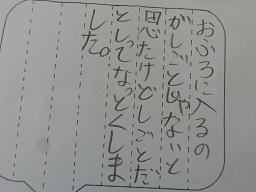 おふろに入るの
がしごとじゃないと
思たけどしごとだ
としてなっとくしま
した。